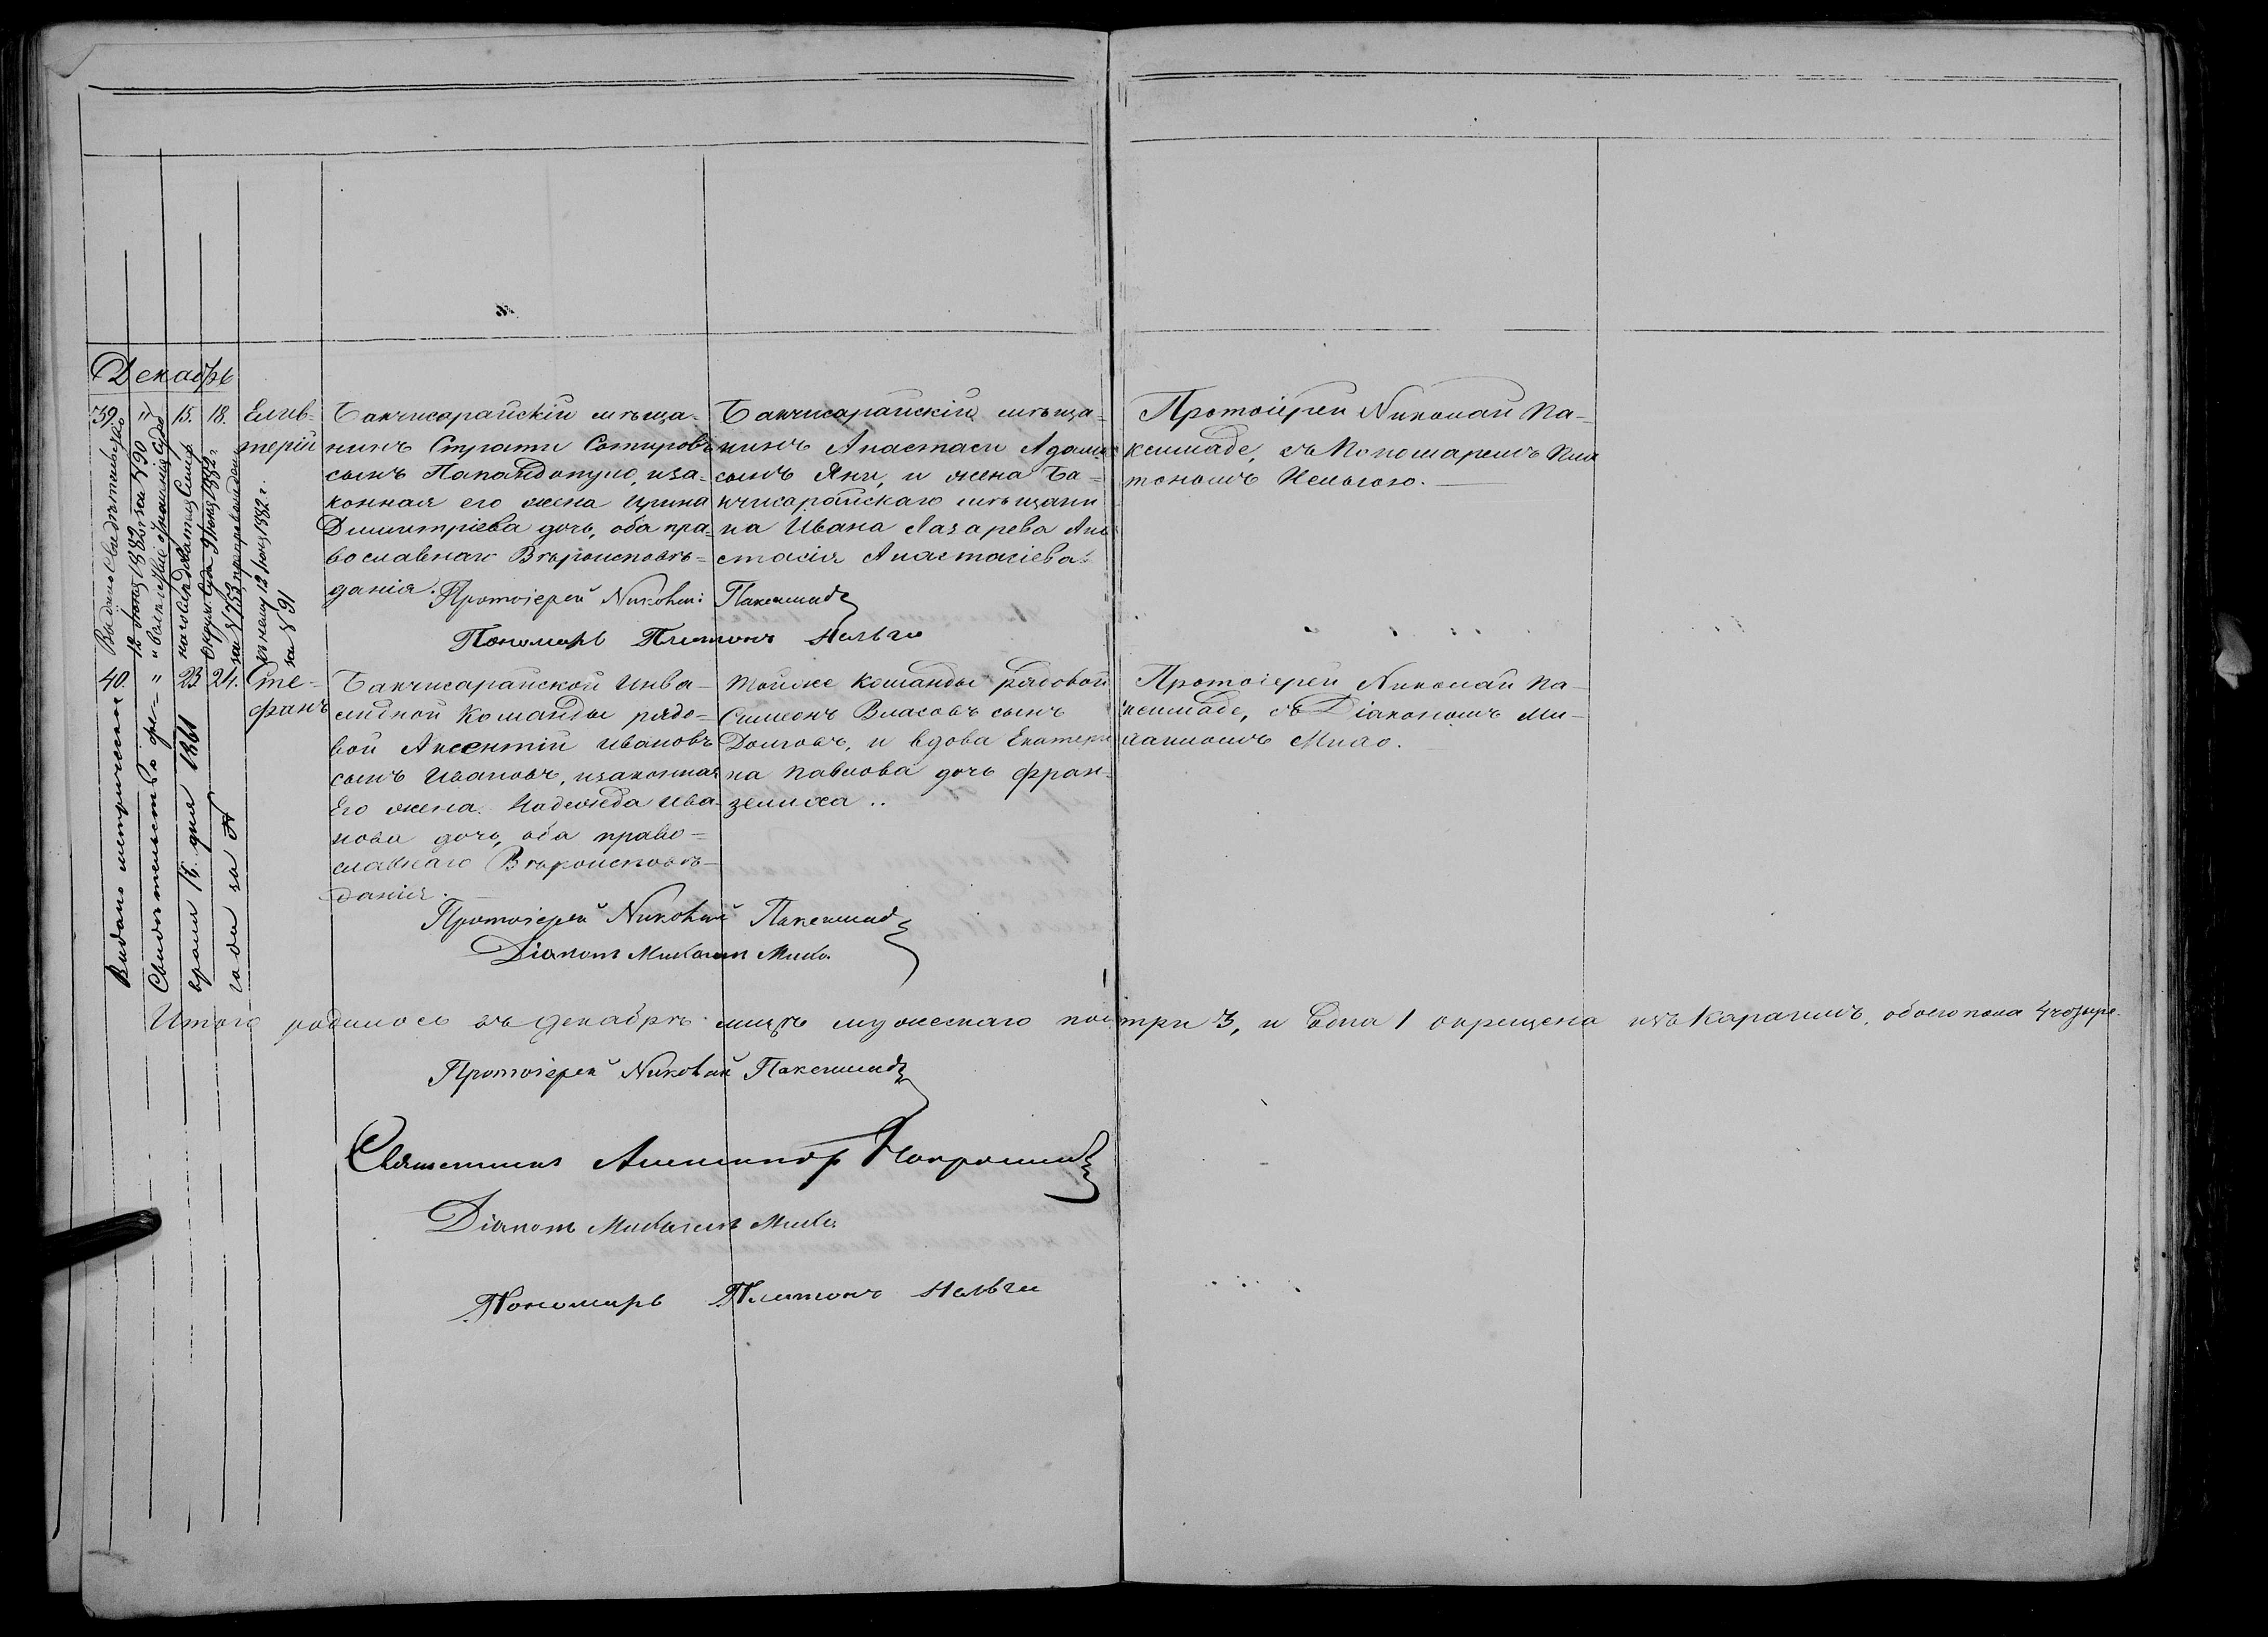 Декабрь
39. " 15. 18.
Елев-
терій
Бахчисарайскій мѣща-
нинъ Страти Сотировъ
сынъ Папандопуло, и за-
конная его жена Ирина
Димитріева дочь, оба пра-
вославнаго Вѣроисповѣ-
данія.
Бахчисарайскій мѣща-
нинъ Анастаси Адамо
сынъ Яни, и жена Ба-
хчисарайскаго мѣщани
на Ивана Лазарева Ана
стасія Анастасіева.
Протоіерей Николай Па-
ксимаде, съ Пономаремъ Пла
тономъ
Протоіерей Николай Паксимаде
Пономарь Платонъ
Выдано Свидѣтельство
12 Іюня 1882 за № 90
за № 753
къ нему 12 Іюня 1882 г.
за № 91
40. " 23. 24.
Сте-
фанъ
Бахчисарайской Инва-
лидной Команды рядо-
вой Аксентій Ивановъ
сынъ Ивановъ, и законная
Его жена Надежда Ива-
нова дочь, оба право-
славнаго Вѣроисповѣ-
данія.
Тойже Команды рядовой
Симеонъ Власовъ сынъ
Долговъ, и вдова Екатери
на Павлова дочь Фран-
Протоіерей Николай Па-
ксимаде, съ Діакономъ Ми-
хаиломъ
Протоіерей Николай Паксимаде
Діаконъ Михаилъ
Выдано метрическое
Свидѣтельство фе-
враля 16 дня 1861
года за №
Итого родилось въ Декабрѣ мцѣ мужескаго пола три 3, и одна 1 окрещена изъ Караимъ, обоего пола 4 четыре.
Протоіерей Николай Паксимаде
Священникъ Александръ
Діаконъ Михаилъ
Пономарь Платонъ